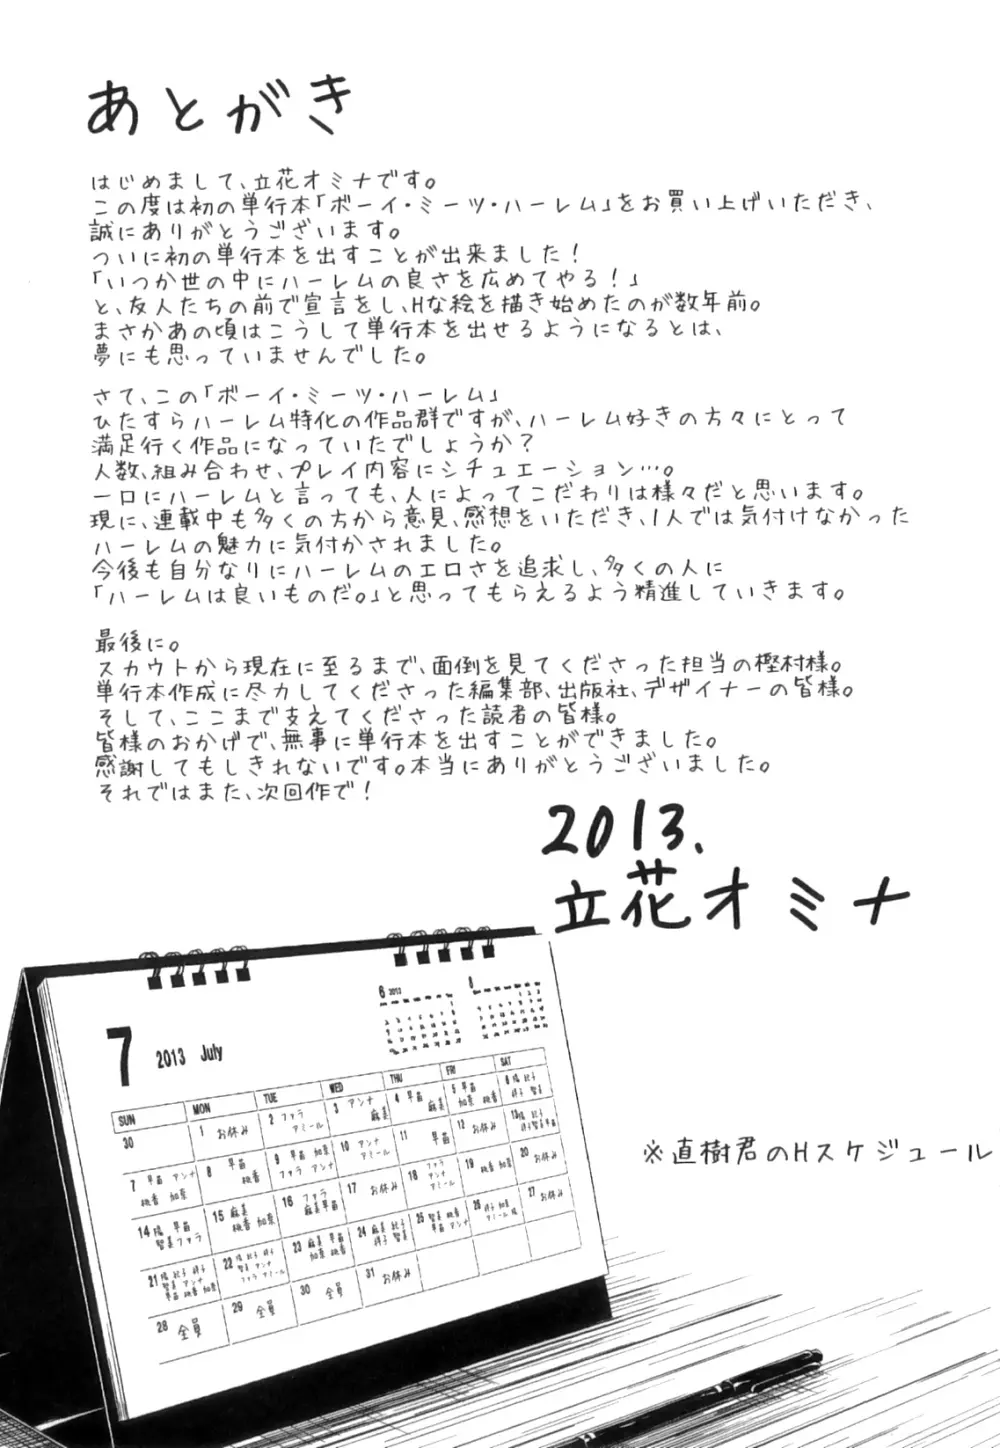 あとがき
はじめまして、立花オミナです。
この度は初の単行本「ボーイ・ミーツ・ハーレム」をお買い上げいただき、
誠にありがとうございます。
ついに初の単行本を出すことが出来ました！
「いつか世の中にハーレムの良さを広めてやる！」
と、友人たちの前で宣言をし、Hな絵を描き始めたのが数年前。
まさかあの頃はこうして単行本を出せるようになるとは、
夢にも思っていませんでした。
さて、この「ボーイ・ミーツ・ハーレム」
ひたすらハーレム特化の作品群ですが、ハーレム好きの方々にとって
満足行く作品になっていたでしょうか？
人数、組み合わせ、プレイ内容にシチュエーション…。
一口にハーレムと言っても、人によってこだわりは様々だと思います。
現に、連載中も多くの方から意見、感想をいただき、1人では気付けなかった
ハーレムの魅力に気付かされました。
今後も自分なりにハーレムのエロさを追求し、多くの人に
「ハーレムは良いものだ。」と思ってもらえるよう精進していきます。
最後に。
スカウトから現在に至るまで、面倒を見てくださった担当の樫村様。
単行本作成に尽力してくださった編集部、出版社、デザイナーの皆様。
そして、ここまで支えてくださった読者の皆様。
皆様のおかげで、無事に単行本を出すことができました。
感謝してもしきれないです。本当にありがとうございました。
それではまた、次回作で！
2013.
立花オミナ
7 2013 July
6 2013
8
SUN MON TUE WED THU FRI SAT
30
1 お休み
2 ファラ アミール
3 アンナ 麻美
4 早苗 麻美
5 早苗 加奈 桃香
6
7 早苗 アンナ 桃香 加奈
8 早苗 桃香
9 早苗 加奈 ファラ アンナ
10 アンナ アミール
11 早苗
12 お休み
13
14 陽 早苗 智美 ファラ
15 麻美 桃香 加奈
16 ファラ 麻美 早苗
17 お休み
18 ファラ アンナ アミール
19 桃香 加奈
20 お休み
21
22
23 麻美 早苗 加奈 桃香
24
25
26
27 お休み
28 全員
29 全員
30 全員
31 お休み
※直樹君のHスケジュール